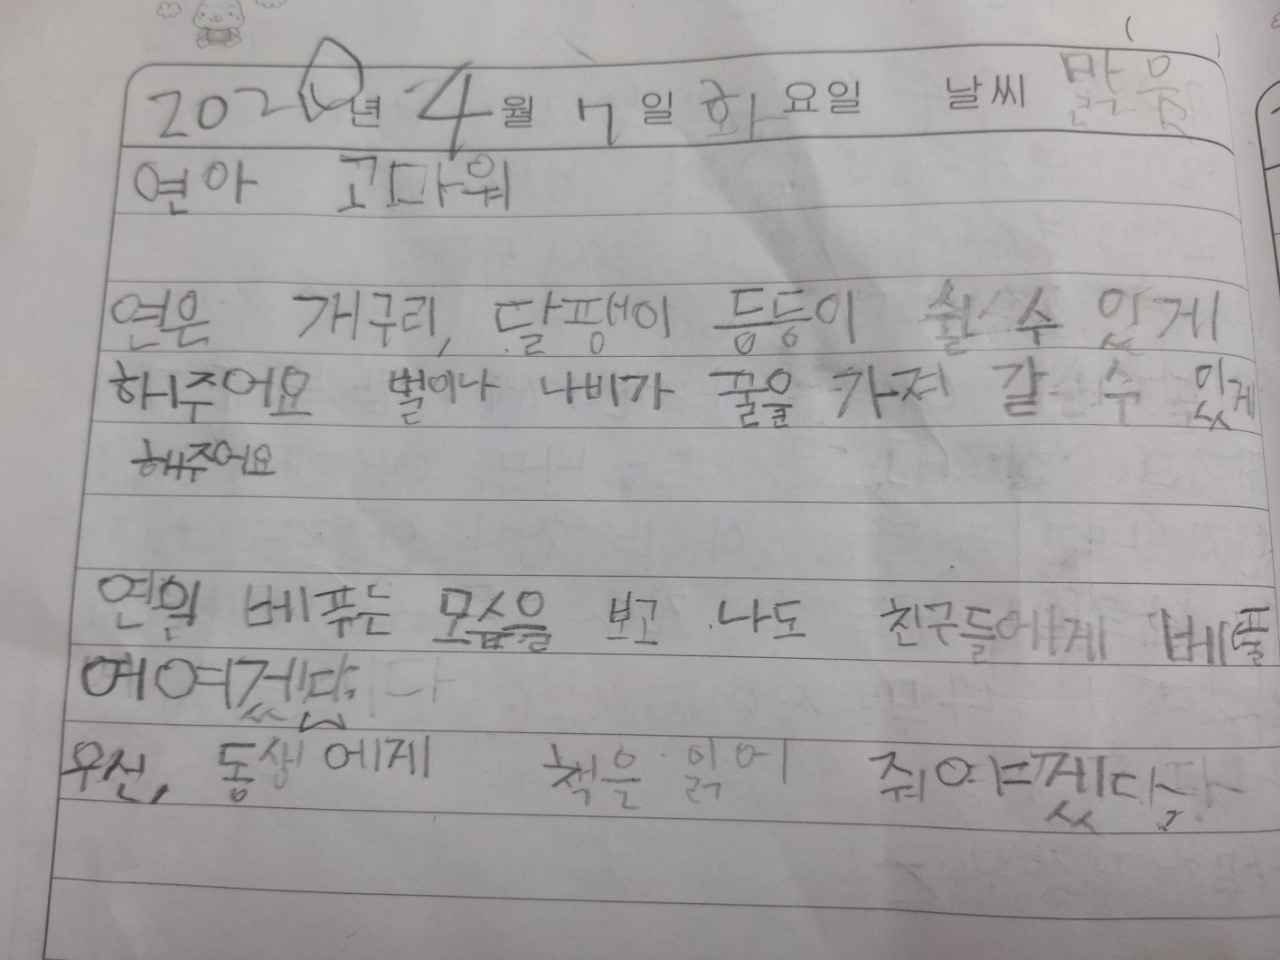 202 년 4월 7일 화요일 날씨 맑음
연아 고마워
연은 개구리, 달팽이 등등이 쉴 수 있게
해주어요 벌이나 나비가 꿀을 가져 갈 수 있게
해주어요
연을 베푸는 모습을 보고 나도 친구들에게 베풀
어여겠다
우선, 동생에게 책을 읽어 줘야겠다